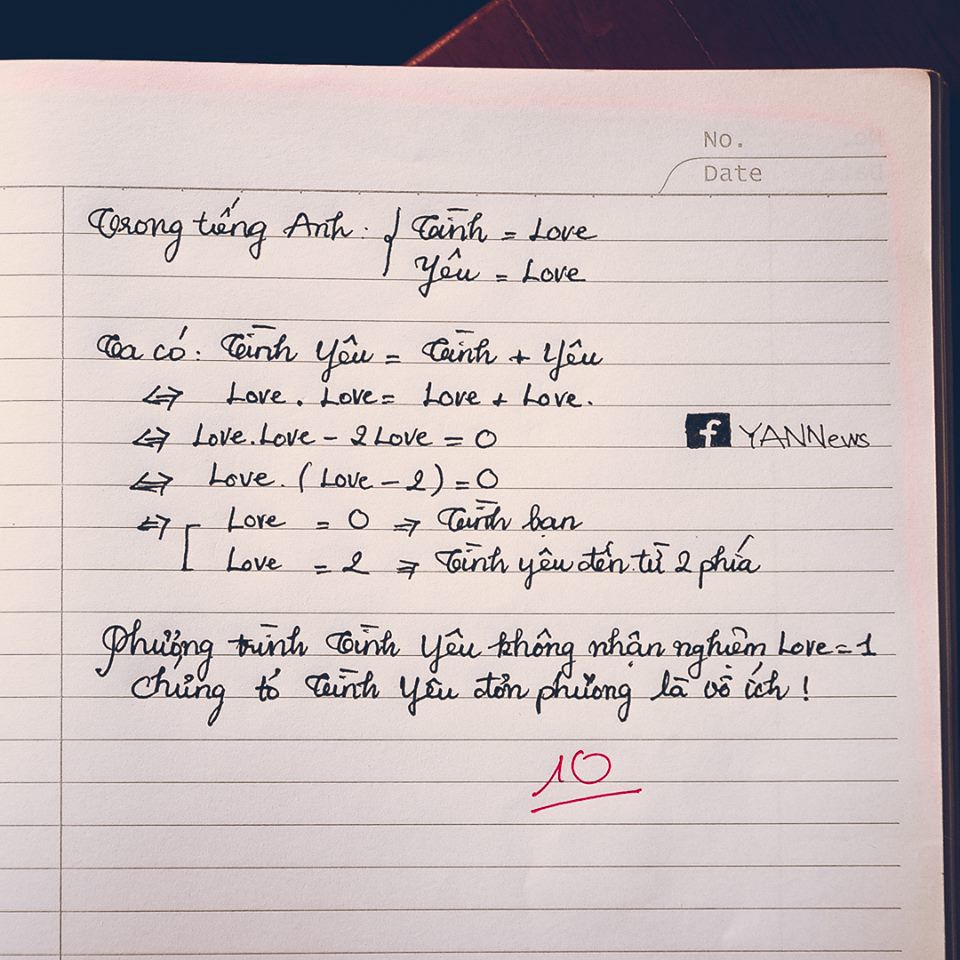 No.
Date
Trong tiếng Anh: { Tình = Love
Yêu = Love
Ta có: Tình Yêu = Tình + Yêu
⇔ Love . Love = Love + Love.
⇔ Love.Love - 2 Love = 0
f YANNews
⇔ Love. (Love - 2) = 0
⇔ [ Love = 0 ⇒ Tình bạn
Love = 2 ⇒ Tình yêu đến từ 2 phía
Phương trình Tình Yêu không nhận nghiệm Love = 1
Chứng tỏ Tình Yêu đơn phương là vô ích !
10